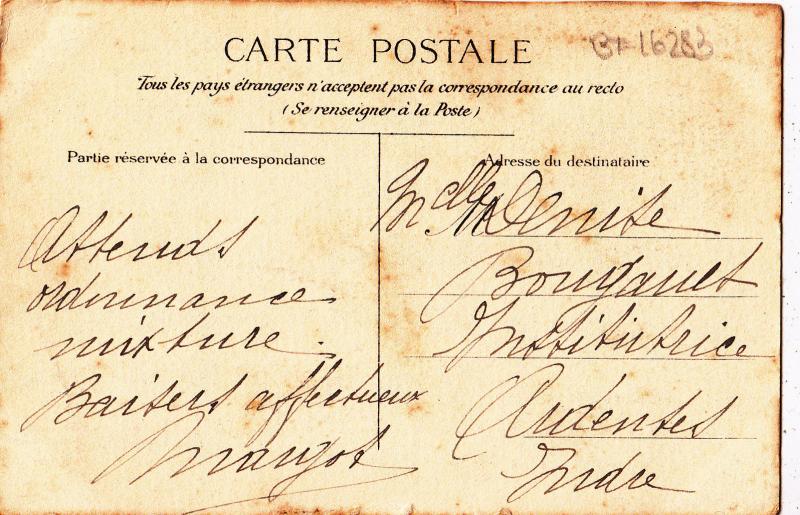 CARTE POSTALE
Tous les pays étrangers n'acceptent pas la correspondance au recto
(Se renseigner à la Poste)
Partie réservée à la correspondance
Attends
ordonnance
mixture.
Baisers affectueux
Margot
Adresse du destinataire
Melle Denise
Institutrice
Ardentes
Indre
16283